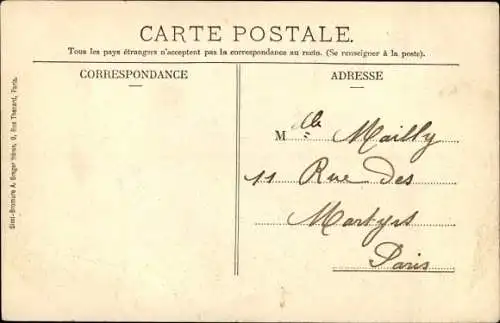 CARTE POSTALE.
Tous les pays étrangers n'acceptent pas la correspondance au recto. (Se renseigner à la poste).
CORRESPONDANCE
ADRESSE
Mlle Mailly
11 Rue des
Martyrs
Paris
Simi-Bromure A. Breger frères, 9, Rue Thénard, Paris.